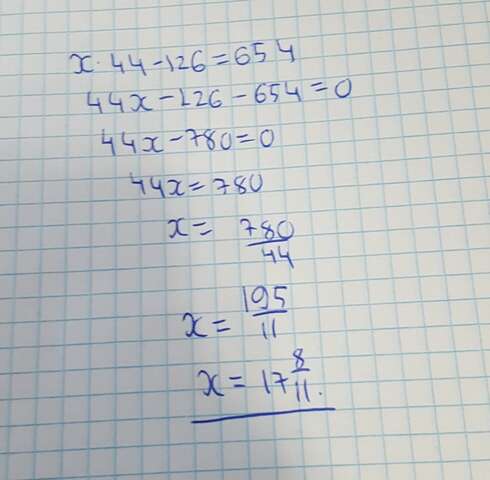 x·44-126=654
44x-126-654=0
44x-780=0
44x=780
x= 780/44
x= 195/11
x= 17 8/11.